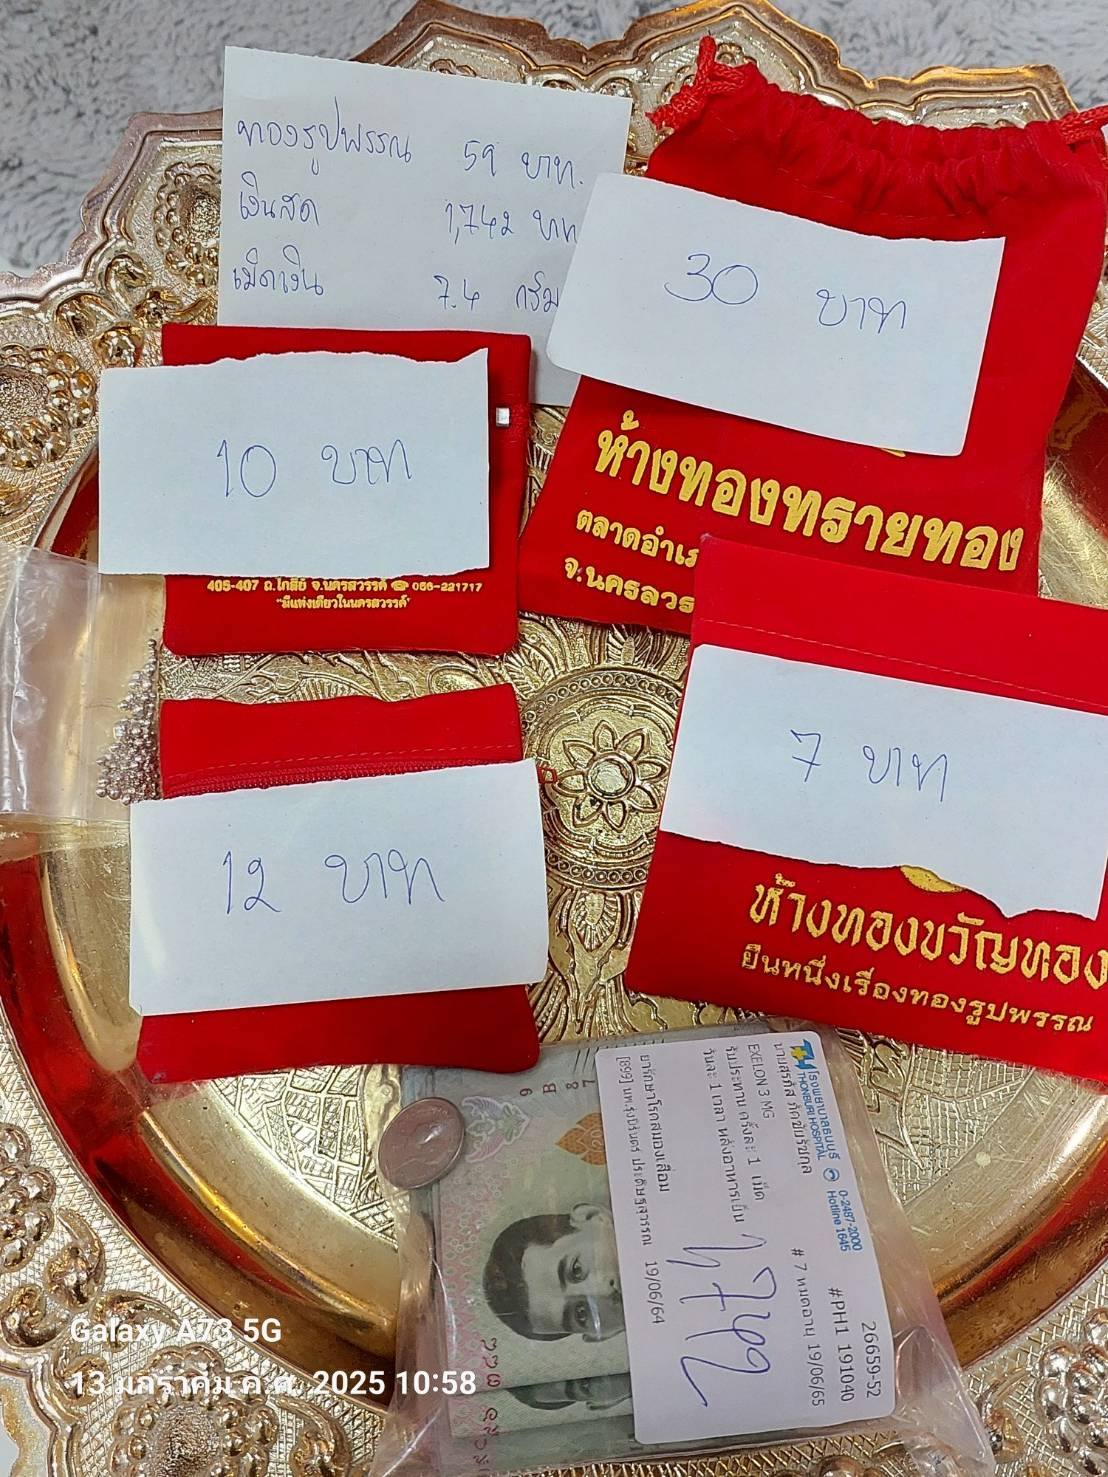 ทองรูปพรรณ 59 บาท.
เงินสด 1,742 บาท
เม็ดเงิน 7.4 กรัม
30 บาท
ห้างทองทรายทอง
ตลาดอำเภ
จ.นครสวร
10 บาท
405-407 ถ.โกสีย์ จ.นครสวรรค์ ☎ 056-221717
"มีแห่งเดียวในนครสวรรค์"
7 บาท
ห้างทองขวัญทอง
ยืนหนึ่งเรื่องทองรูปพรรณ
12 บาท
9 B 87
โรงพยาบาลธนบุรี 0-2487-2000
THONBURI HOSPITAL Hotline 1645
26659-52
#PH1 191040
EXELON 3 MG # 7 หมดอายุ 19/06/65
รับประทาน ครั้งละ 1 เม็ด
วันละ 1 เวลา หลังอาหารเย็น
ยารักษาโรคสมองเสื่อม
[899] 19/06/64
1742
Galaxy A73 5G
13 มกราคม ค.ศ. 2025 10:58